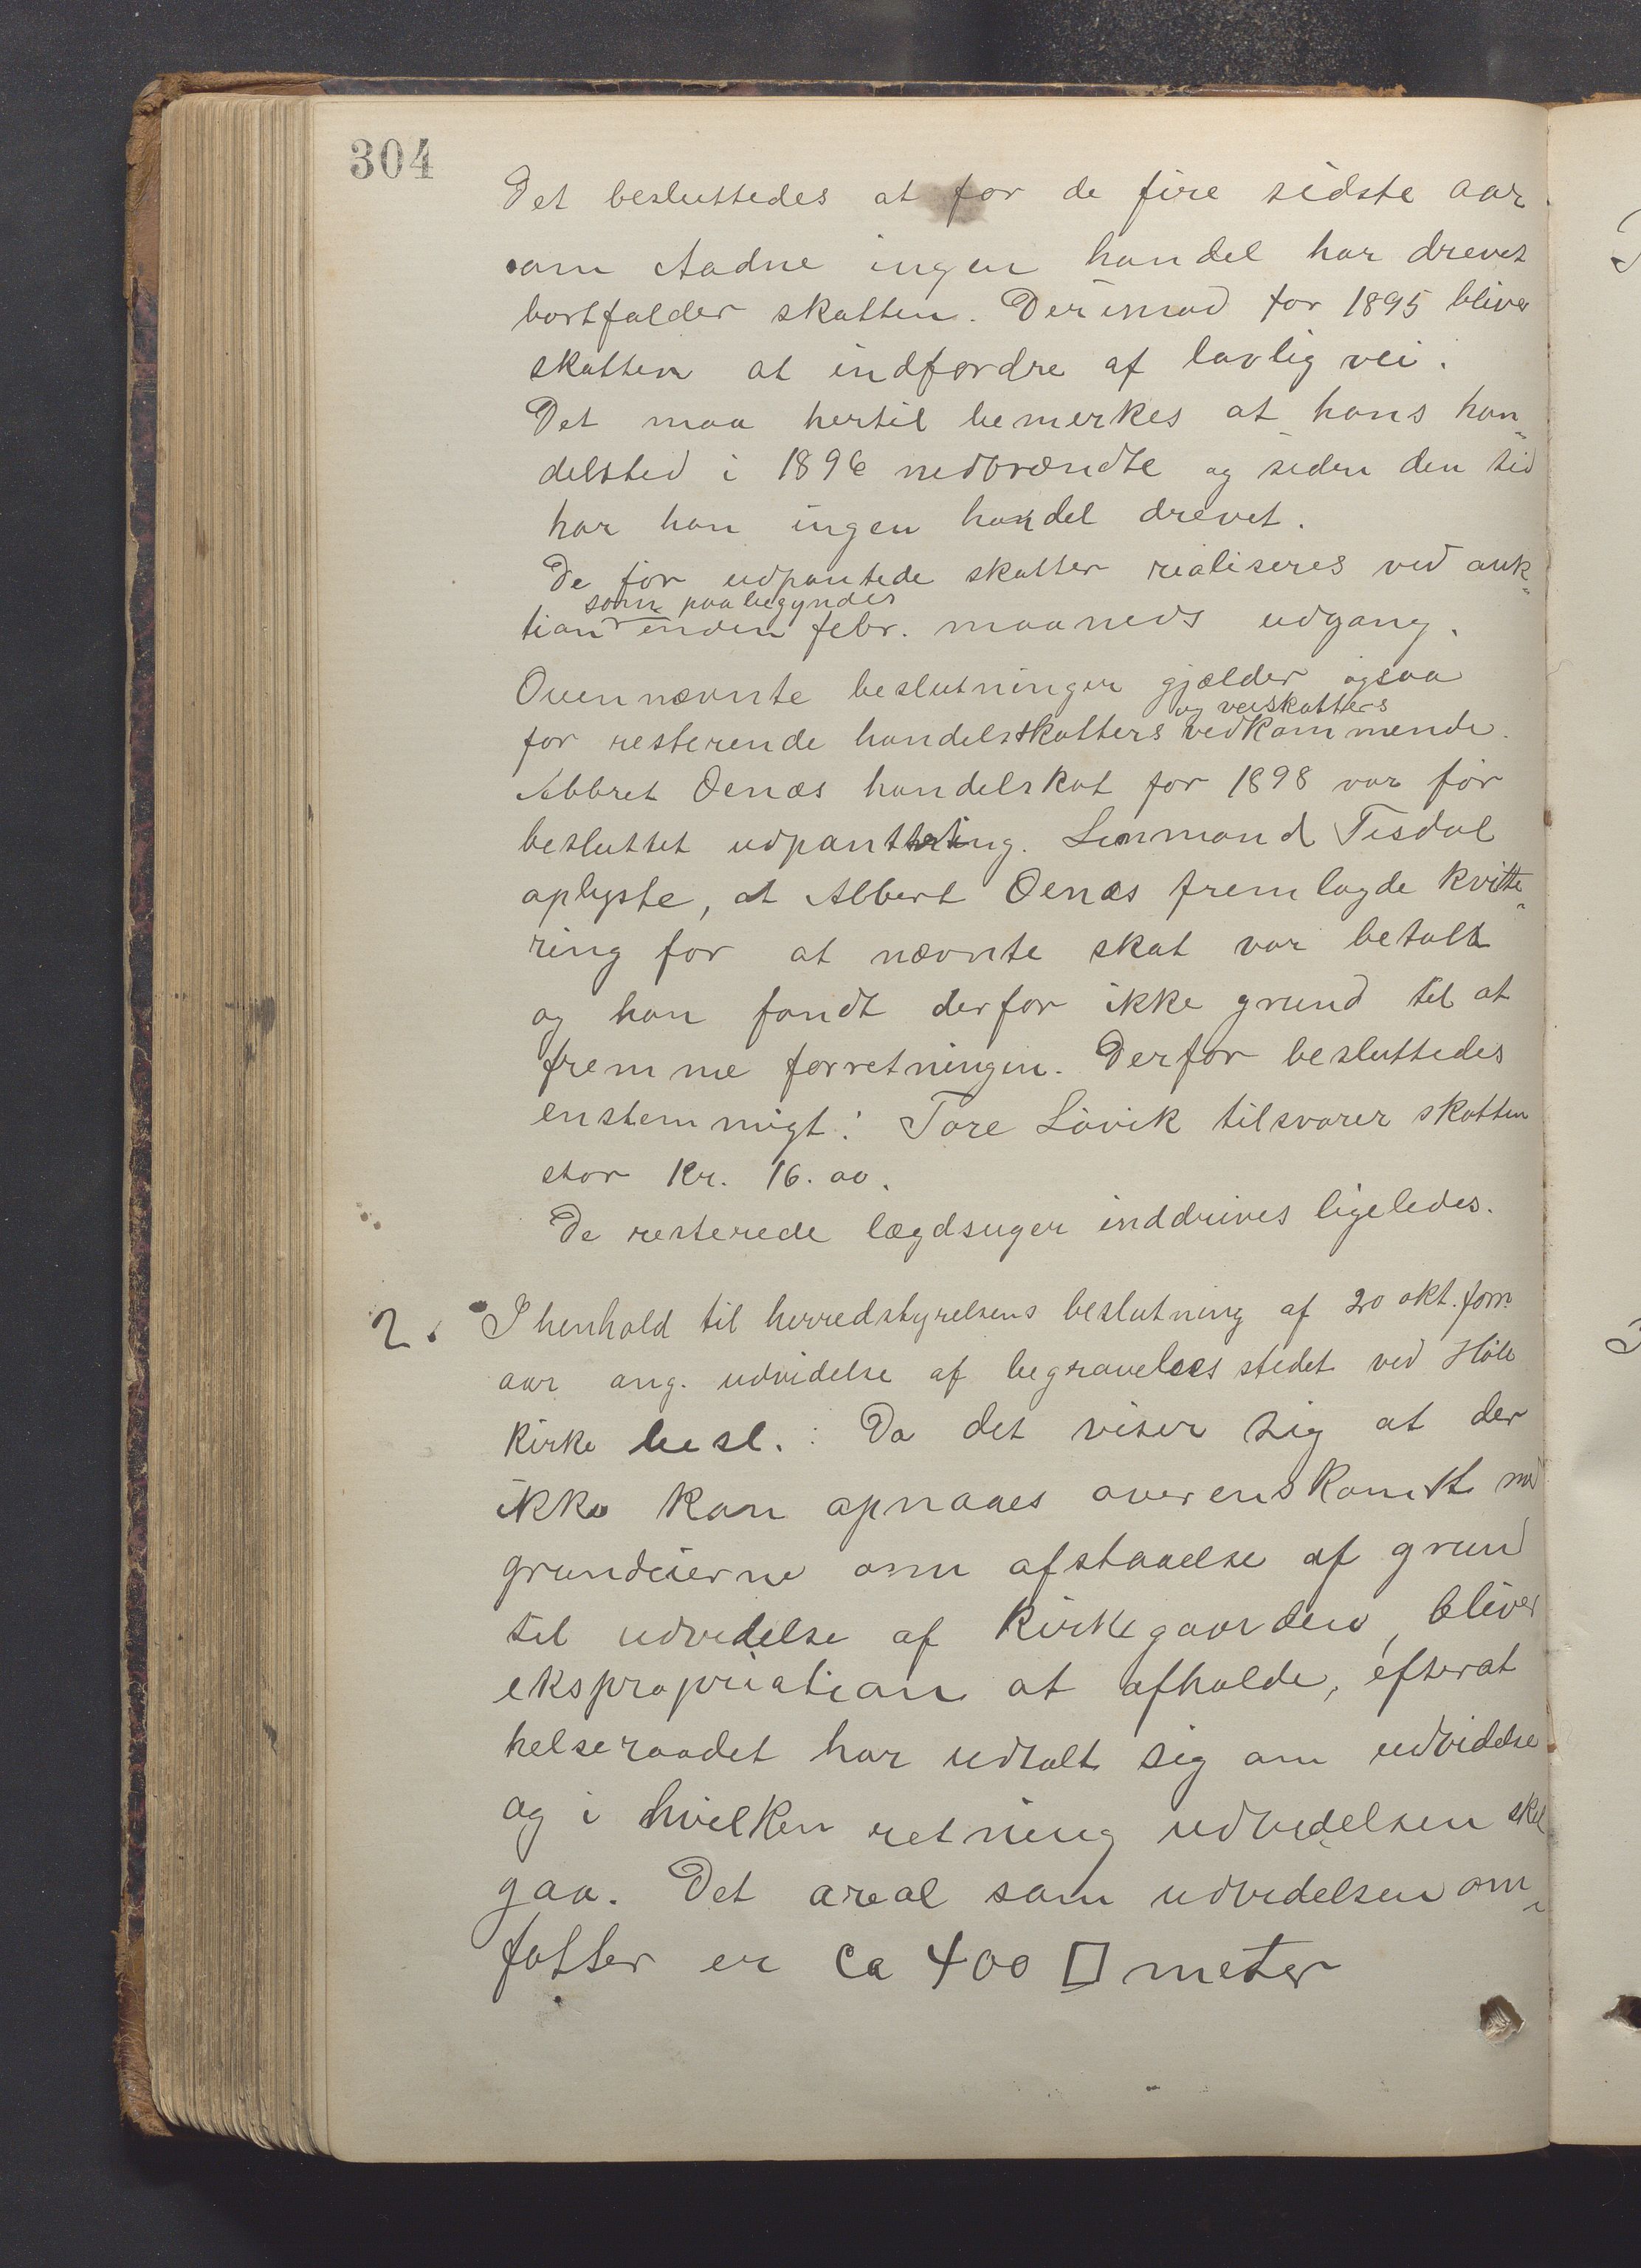 304
Det besluttedes at for de fire sidste aar
som Aadne ingen handel har drevet
bortfalder skatten. Derimod for 1895 bliver
skatten at indfordre af lovlig vei.
Det maa hertil bemerkes at hans han„
delsted i 1896 nedbrændte og siden den tid
har han ingen handel drevet.
De før udpantede skatter realiseres ved auk„
som paabegyndes
tion inden febr. maaneds udgang.
Ovennævnte beslutninger gjælder ogsaa
og veiskatters
for resterende handelsskatters vedkommende.
Abbret Oenæs handelskat for 1898 var før
besluttet udpantning. Lensmand Tisdal
oplyste, at Albert Oenæs fremlagde kvitte„
ring for at nævnte skat var betalt
og han fandt derfor ikke grund til at
fremme forretningen. Derfor besluttedes
enstemmigt: Tore Løvik tilsvarer skatten
stor Kr. 16.00.
De resterede lægdsuger inddrives ligeledes.
2. I henhold til herredstyrelsens beslutning af 20 okt. forr.
aar ang. udvidelse af begravelses stedet ved Høle
kirke besl. : Da det viser sig at der
ikke kan opnaaes overenskomst med
grundeierne om afstaaelse af grund
til udvidelse af Kirkegaarden, bliver
ekspropriation at afholde, efterat
helseraadet har udtalt sig om udvidelse
og i hvilken retning udvidelsen skal
gaa. Det areal som udvidelsen om„
fatter er ca 400 □ meter